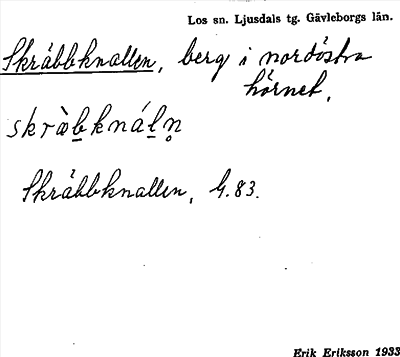 Los sn. Ljusdals tg. Gävleborgs län.
Skräbbknallen, berg i nordöstra
hörnet.
skræ̀b̲knáḻn̥
Skräbbknallen, G.83.
Erik Eriksson 1933